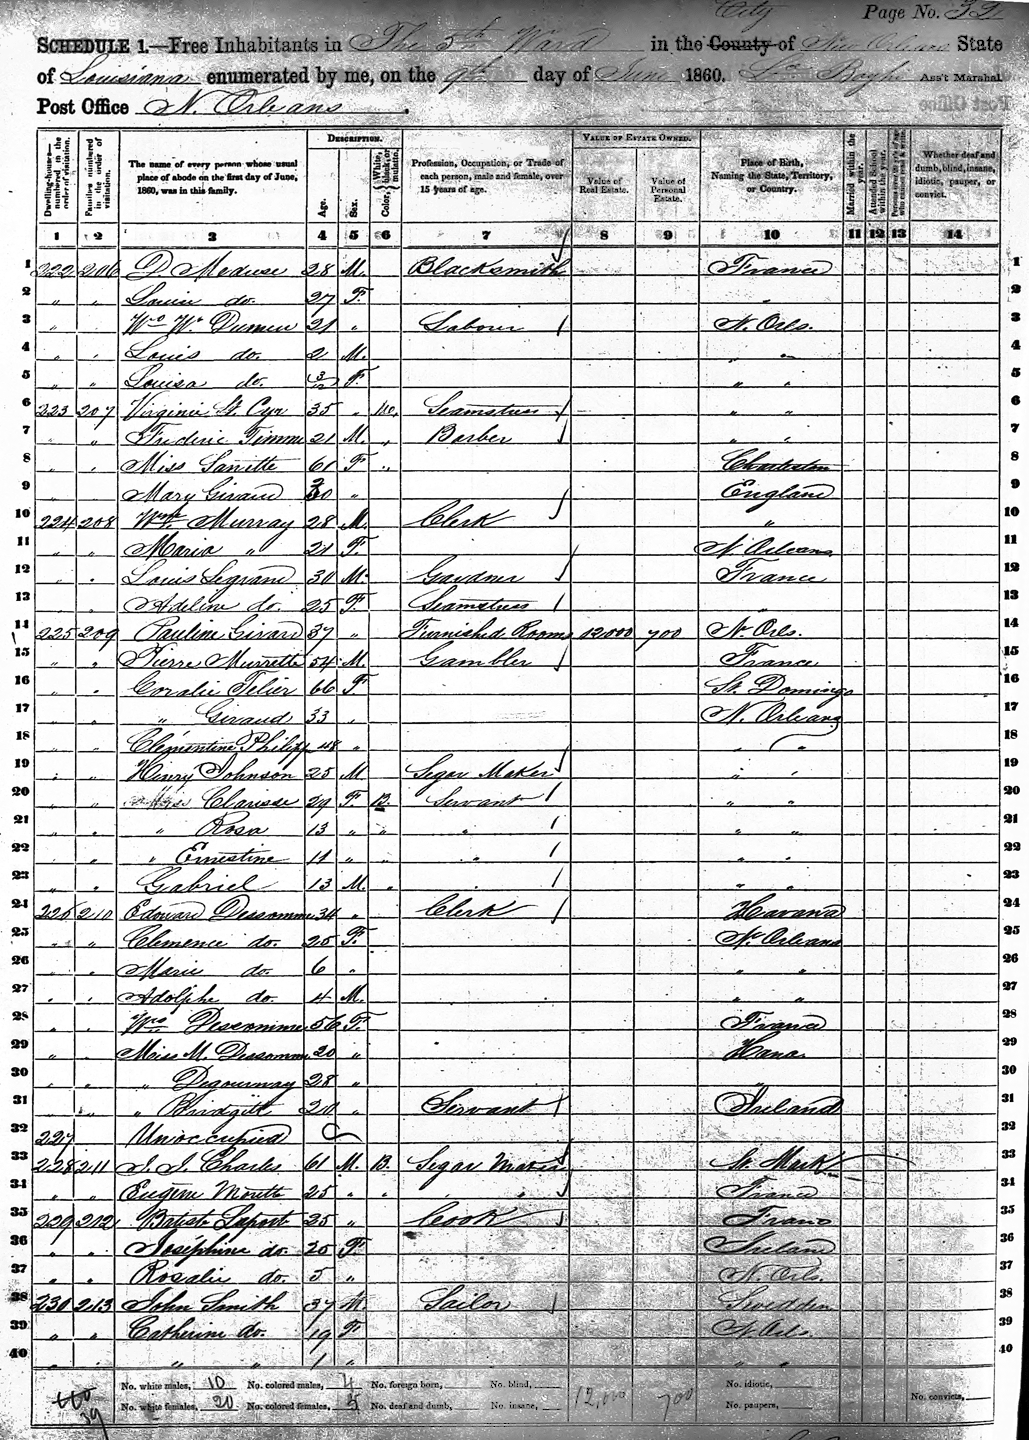 City Page No. 32
SCHEDULE 1.—Free Inhabitants in The 5th Ward in the County of New Orleans State
of Louisiana enumerated by me, on the 9th day of June 1860. Ass't Marshal.
Post Office N. Orleans.
Dwelling-houses—numbered in the order of visitation. Families numbered in the order of visitation. The name of every person whose usual place of abode on the first day of June, 1860, was in this family. DESCRIPTION. Age. Sex. Color, White, black, or mulatto. Profession, Occupation, or Trade of each person, male and female, over 15 years of age. VALUE OF ESTATE OWNED. Value of Real Estate. Value of Personal Estate. Place of Birth, Naming the State, Territory, or Country. Married within the year. Attended School within the year. Persons over 20 y'rs of age who cannot read & write. Whether deaf and dumb, blind, insane, idiotic, pauper, or convict.
1 2 3 4 5 6 7 8 9 10 11 12 13 14
1 222 206 D Meduse 28 M. Blacksmith France 1
2 " " Louise do. 27 F. " 2
3 " " W. Dumeu 21 " Labour N. Orls. 3
4 " " Louis do. 2 M. " " 4
5 " " Louisa do. 3/12 F. " " 5
6 223 207 Virginie St. Cyr 35 " Mo. Seamstress " " 6
7 " " Frederic Timme 21 M. " Barber " " 7
8 " " Miss Sanitte 61 F " Charleston 8
9 " " Mary Giraud 30 " England 9
10 224 208 Wm. Murray 28 M. Clerk " 10
11 " " Maria " 21 F. N Orleans 11
12 " " Louis Legrand 30 M. Gardner France 12
13 " " Adeline do. 25 F. Seamstress " 13
14 225 209 Pauline Girard 37 " Furnished Rooms 12000 700 N. Orls. 14
15 " " Pierre Murrette 54 M. Gambler France 15
16 " " Coralie Telier 66 F St. Domingo 16
17 " " " Giraud 33 " N. Orleans 17
18 " " Clémentine Philipp 48 " " " 18
19 " " Henry Johnson 25 M Segar Maker " " 19
20 " " Miss Clarisse 29 F. B. Servant " " 20
21 " " " Rosa 13 " " " " " 21
22 " " " Ernestine 11 " " " " " 22
23 " " Gabriel 13 M. " " " " 23
24 226 210 Edouard Dessomme 34 " Clerk Havana 24
25 " " Clemence do. 25 F. N. Orleans 25
26 " " Marie do. 6 " " " 26
27 " " Adolphe do. 4 M. " " 27
28 " " Dessomme 56 F. France 28
29 " " Miss M. Dessomme 20 " Hana. 29
30 " " " Degournay 28 " " 30
31 " " " Bridgitt 20 " Servant Ireland 31
32 227 Unoccupied 32
33 228 211 J. J. Charles 61 M. B. Segar Maker St. Mark 33
34 " " Eugène Morette 25 " " " " France 34
35 229 212 Batiste Laport 35 " Cook Franc 35
36 " " Joséphine do. 25 F. Ireland 36
37 " " Rosalie do. 5 " N. Orls. 37
38 230 213 John Smith 37 M. Sailor Swedden 38
39 " " Catherine do. 19 F N Orls. 39
40 " " " " 1 " " " 40
No. white males, 10 No. colored males, 4 No. foreign born, No. blind, No. idiotic,
No. white females, 20 No. colored females, 5 No. deaf and dumb, No. insane, 12,000 700 No. paupers, No. convicts,
39